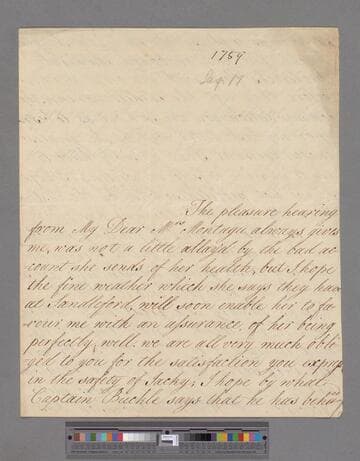 1759
The pleasure hearing
from My Dear Mrs Montagu always gives
me, was not a little allay'd by the bad ac
count she sends of her health, but I hope
the fine weather which she says they have
at Sandleford, will soon enable her to fa
vour me with an assurance, of her being
perfectly well. we are all very much obli
ged to you for the satisfaction you express
in the safety of Jacky; I hope by what
Captain says that he has